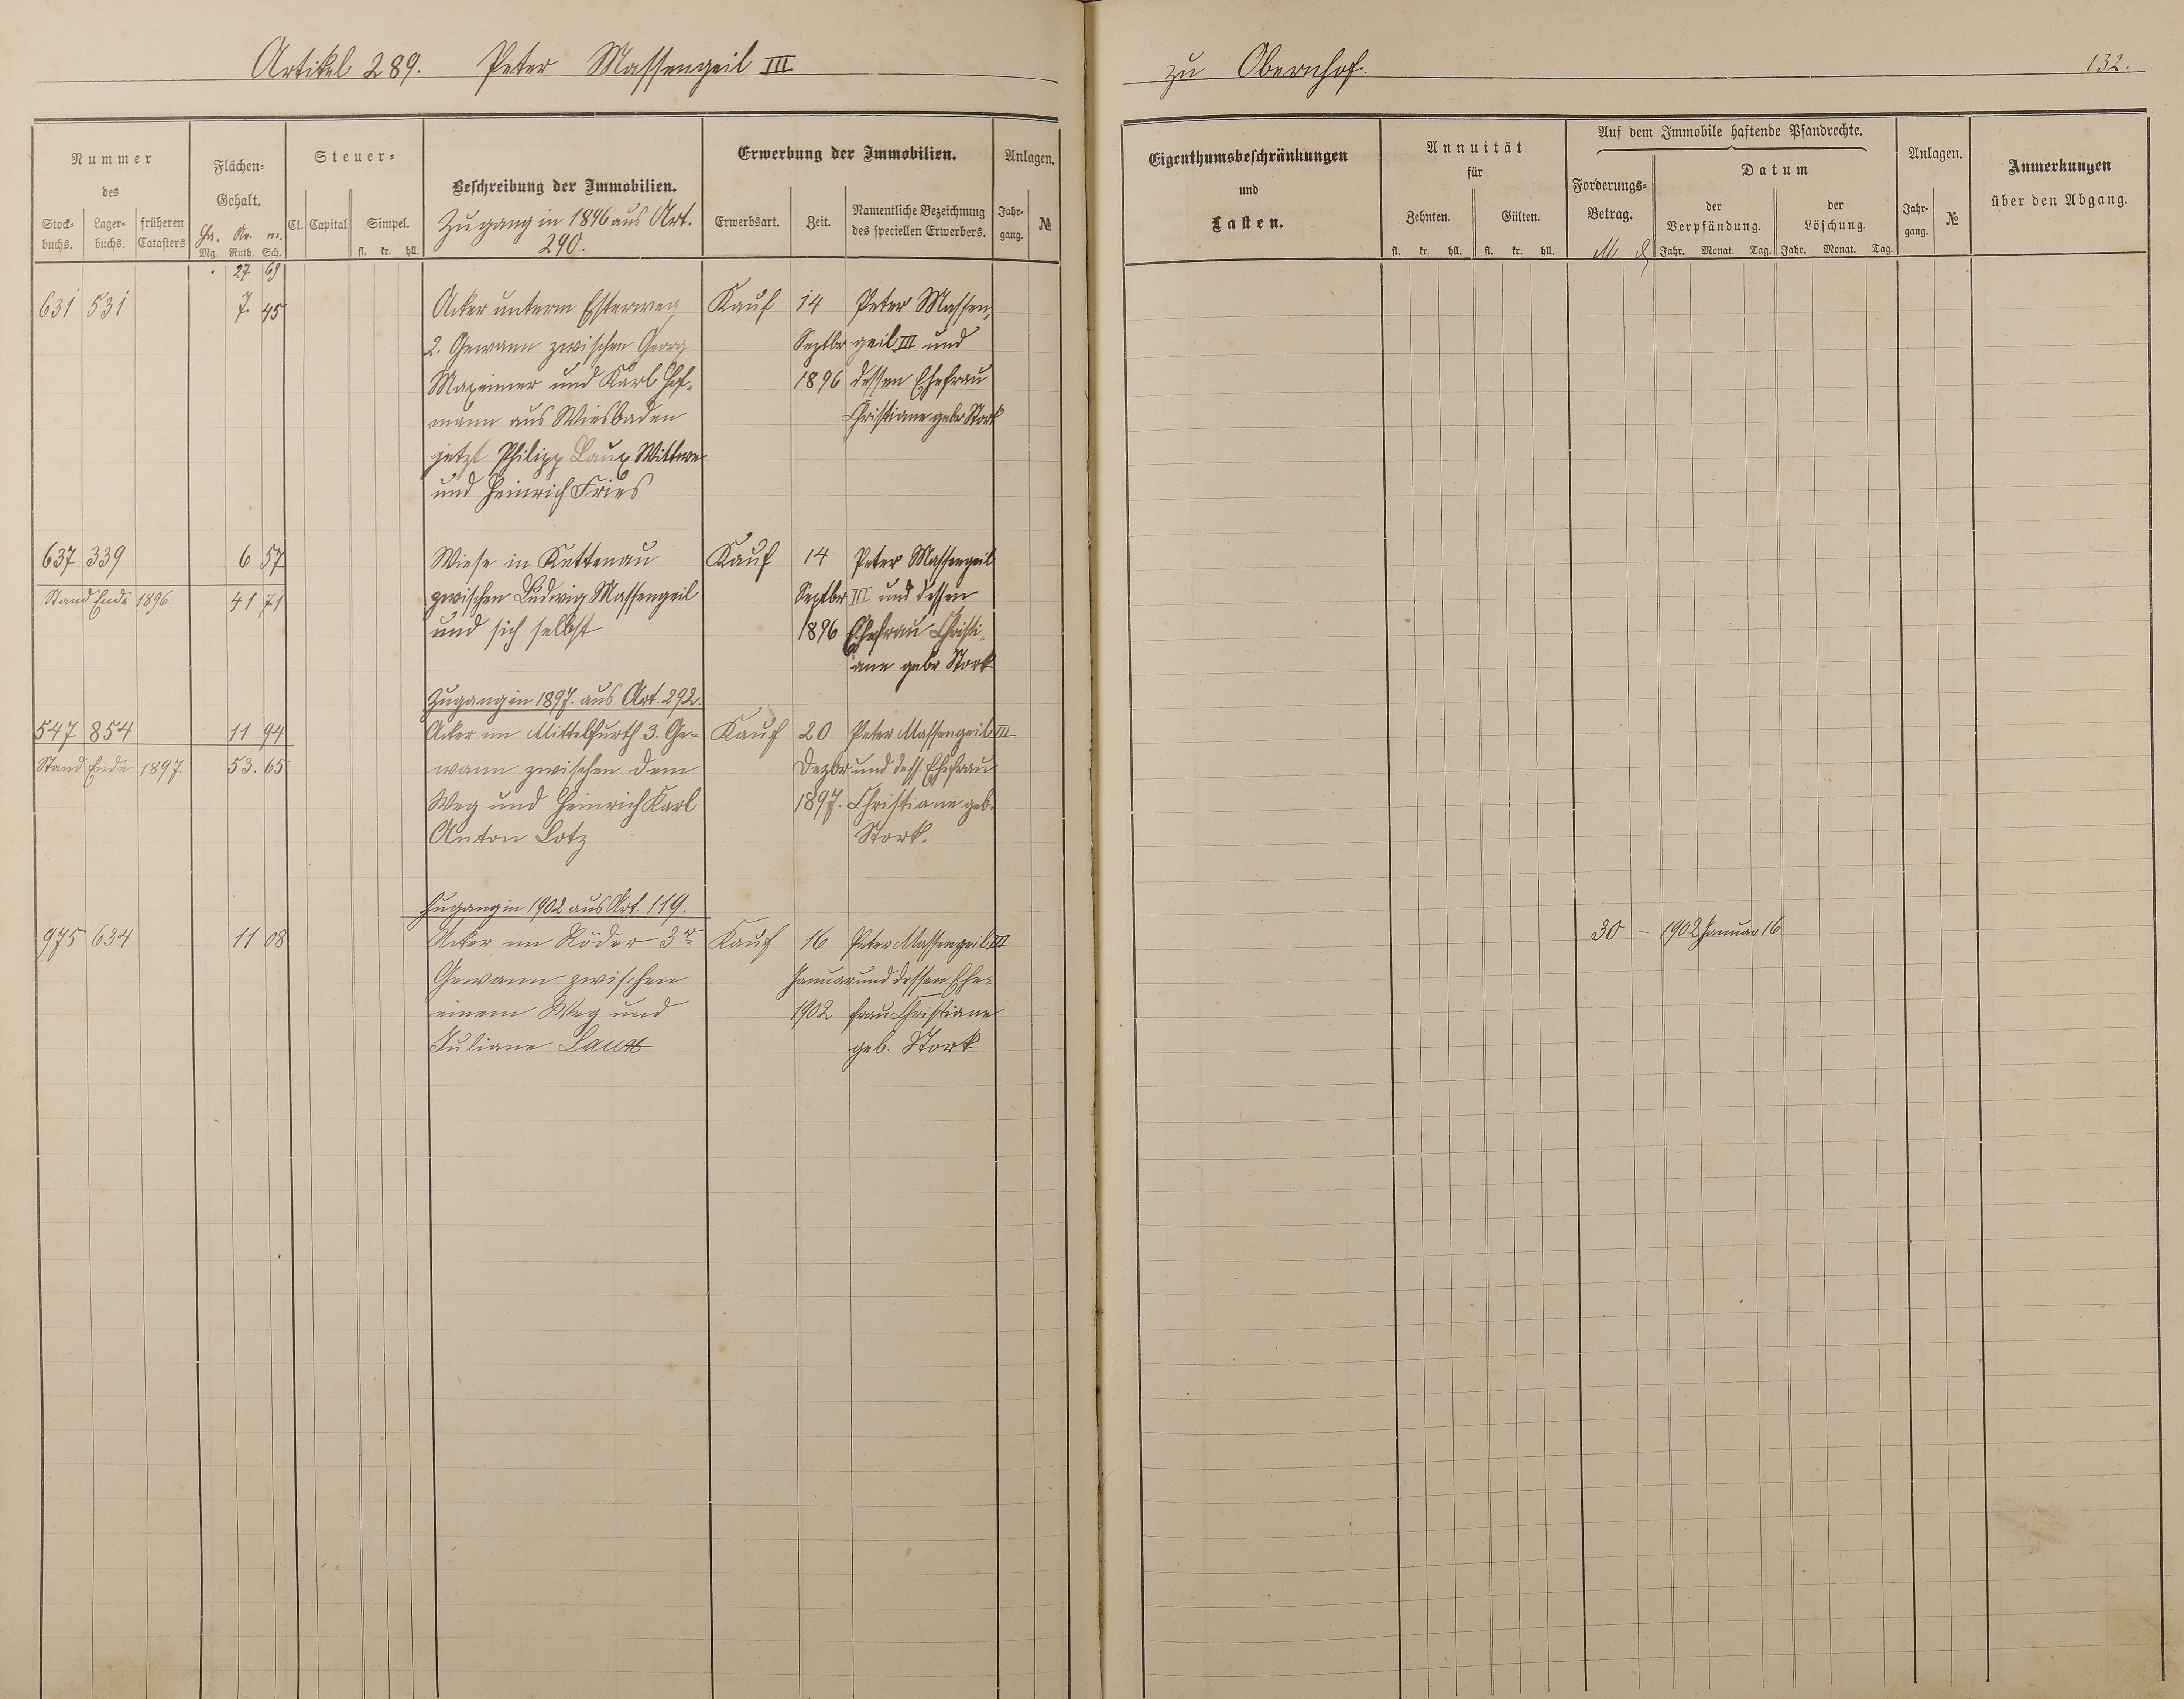 Artikel 289. Peter Massengeil III
zu Obernhof.
132.
Nummer
des
Stock-
buchs.
Lager-
buchs.
früheren
Catasters
Flächen-
Gehalt.
Ha. Ar. m.
Mg. Ruth. Sch.
Steuer-
Cl. Capital Simpel.
fl. kr. hll.
Beschreibung der Immobilien.
Zugang in 1896 aus Art.
290.
Erwerbung der Immobilien.
Erwerbsart. Zeit.
Namentliche Bezeichnung
des speciellen Erwerbers.
Anlagen.
Jahr-
gang.
№
Eigenthumsbeschränkungen
und
Lasten.
Annuität
für
Zehnten. Gülten.
fl. kr. hll. fl. kr. hll.
Auf dem Immobile haftende Pfandrechte.
Forderungs-
Betrag.
M ₰
Datum
der
Verpfändung.
Jahr. Monat. Tag.
der
Löschung.
Jahr. Monat. Tag.
Anlagen.
Jahr-
gang.
№
Anmerkungen
über den Abgang.
27 69
631 531 7. 45 Acker unterm Esterweg Kauf 14 Peter Massen-
2. Gewann zwischen Georg Septbr geil III und
Maxeiner und Karl Hof- 1896 dessen Ehefrau
mann aus Wiesbaden Christiane gebr Stork
jetzt Philipp Laux Wittwe
und Heinrich Fries
637 339 6 57 Wiese in Kettenau Kauf 14 Peter Massengeil
Stand Ende 1896. 41 71 zwischen Ludwig Massengeil Septbr III und dessen
und sich selbst 1896 Ehefrau Christi-
ane gebr Stork
Zugang in 1897. aus Art. 292.
547 854 11 94 Acker im Mittelfurth 3. Ge- Kauf 20 Peter Massengeil III
Stand Ende 1897. 53. 65 wann zwischen dem Dezbr und dess. Ehefrau
Weg und Heinrich Karl 1897. Christiane geb.
Anton Lotz Stork.
Zugang in 1902 aus Art. 119.
975 634 11 08 Acker im Röder 3r Kauf 16 Peter Massengeil III 30 – 1902 Januar 16
Gewann zwischen Januar und dessen Ehe-
einem Weg und 1902 frau Christiane
Juliane Laux geb. Stork